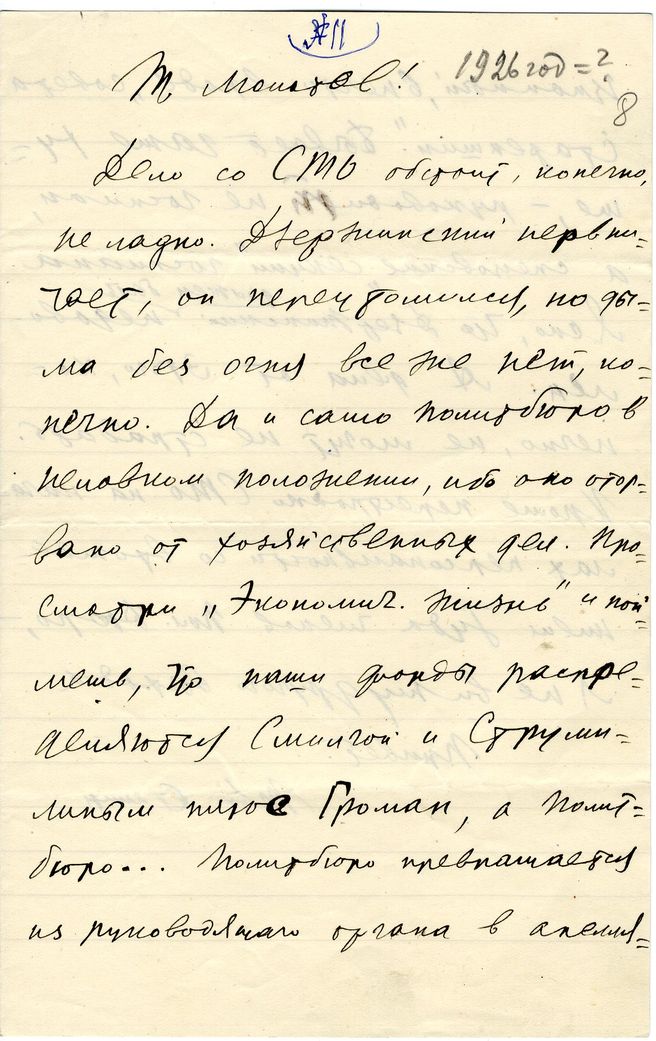 №11
1926 год = ?
8
Т. Молотов!
Дело со СТО обстоит, конечно,
не ладно. Дзержинский нервни=
чает, он переутомился, но ды=
ма без огня все же нет, ко=
нечно. Да и само Политбюро в
неловком положении, ибо оно отор=
вано от хозяйственных дел. Про=
смотри „Экономич. жизнь" и пой=
мешь, что наши фонды распре=
деляются Смилгой и Струми=
линым плюс Громан, а Полит=
бюро... Политбюро превращается
из руководящаго органа в апелля=